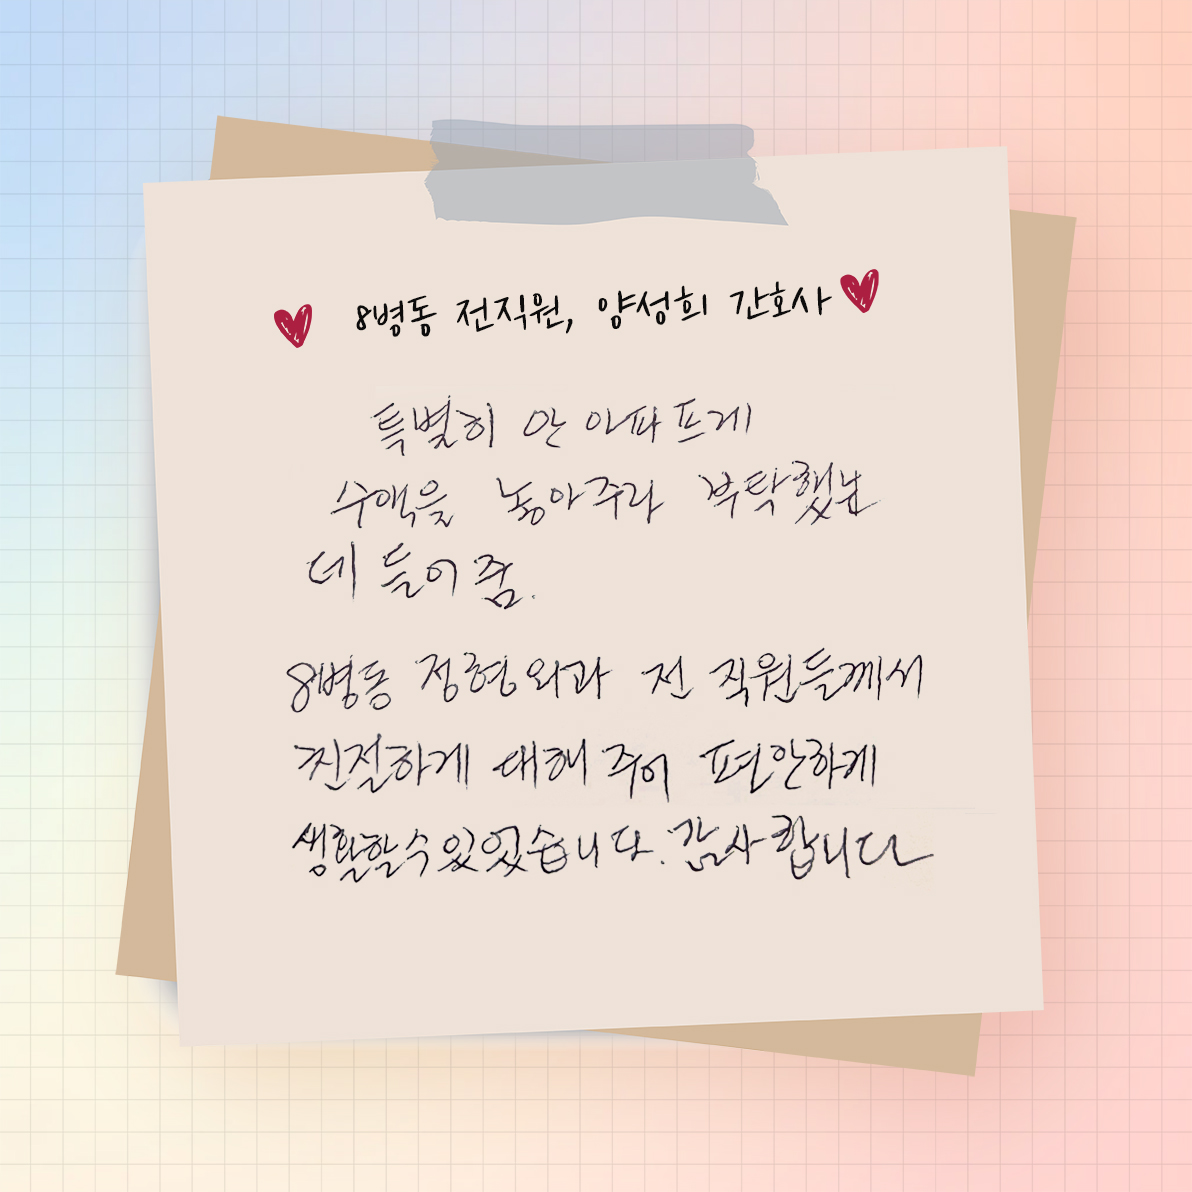 8병동 전직원, 양성희 간호사
특별히 안 아파프게
수액을 놓아주라 부탁했는
데 들어줌.
8병동 정형외과 전 직원들께서
친절하게 대해 주어 편안하게
생활할수있었습니다. 감사합니다